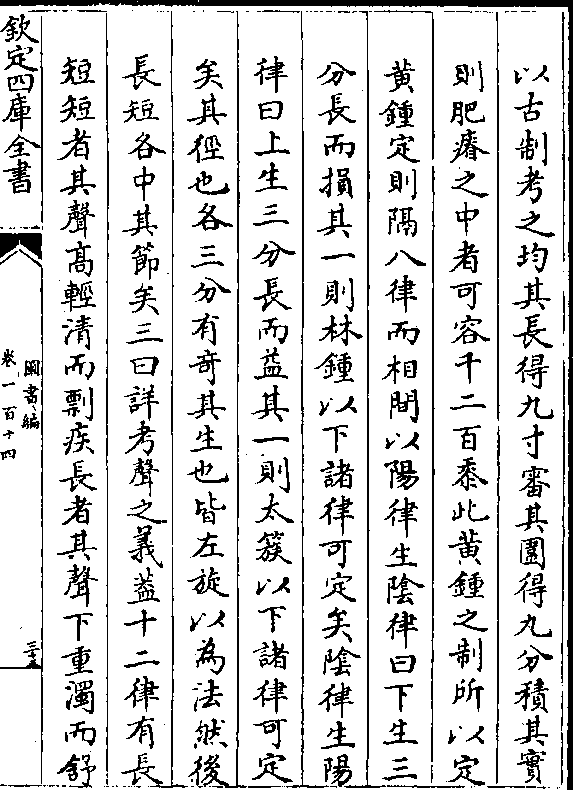 以古制考之均其長得九寸審其圍得九分積其實
則肥瘠之中者可容千二百黍此黄鍾之制所以定
黄鍾定則隔八律而相間以陽律生陰律曰下生三
分長而損其一則林鍾以下諸律可定矣陰律生陽
律曰上生三分長而益其一則太簇以下諸律可定
矣其徑也各三分有竒其生也皆左旋以為法然後
長短各中其節矣三曰詳考聲之義葢十二律有長
短短者其聲髙輕清而剽疾長者其聲下重濁而舒
欽定四庫全書
圖書編
卷一百十四
三十五